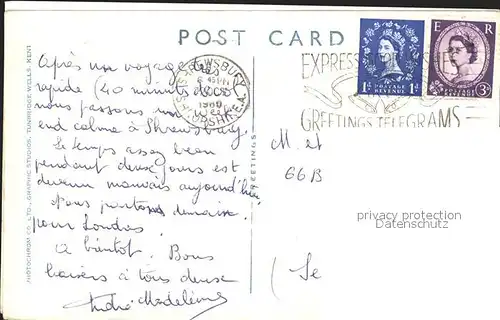 POST CARD
Après un voyage très
rapide (40 minutes
nous passons un
end calme à Shrewsbury.
Le temps assez beau
pendant deux jours est
devenu mauvais aujourd'hui
Nous partons
pour Londres.
A bientôt. Bons
baisers à tous deux
André Madeleine
SHREWSBURY
SHROPSHIRE
E R
POSTAGE REVENUE
1D 1D
3D
EXPRESS
GREETINGS TELEGRAMS
M. et
66 B
(Se
GREETINGS
privacy protection
Datenschutz
PHOTOCHROM CO. LTD., GRAPHIC STUDIOS, TUNBRIDGE WELLS, KENT